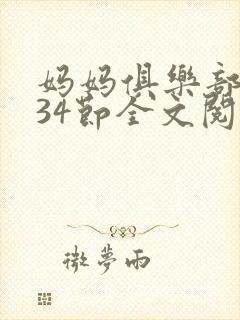 妈妈俱樂部
34節全文閱
微夢雨